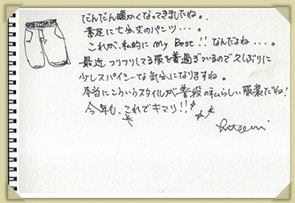 だんだん暖かくなってきましたね。
素足に七分丈のパンツ・・・。
これが、私的に my Best!! なんだよね・・・。
最近 フリフリしてる服を着過ぎているので久しぶりに
少しスパイシーな気分になりますね。
本当にこういうスタイルが普段の私らしい服装だね!
今年も、これでキマリ!!